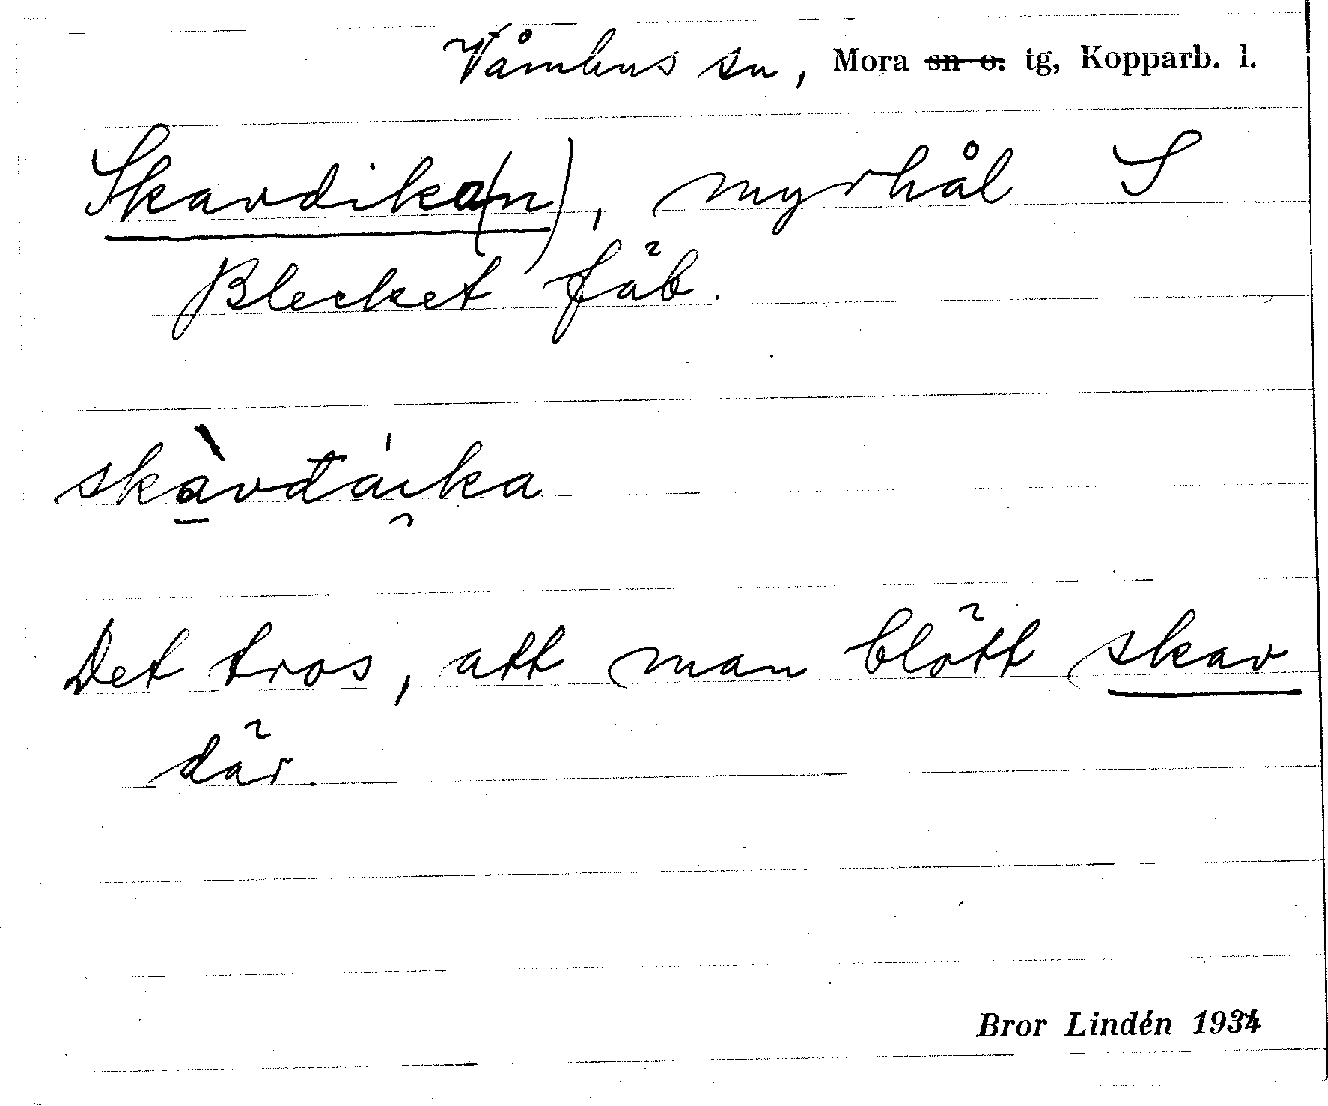 Våmhus sn, Mora ~~sn o.~~ tg, Kopparb. l.
Skavdika(n), myrhål S
Blecket fäb.
skàvđáika
Det tros, att man blött skav
där.
Bror Lindén 1934